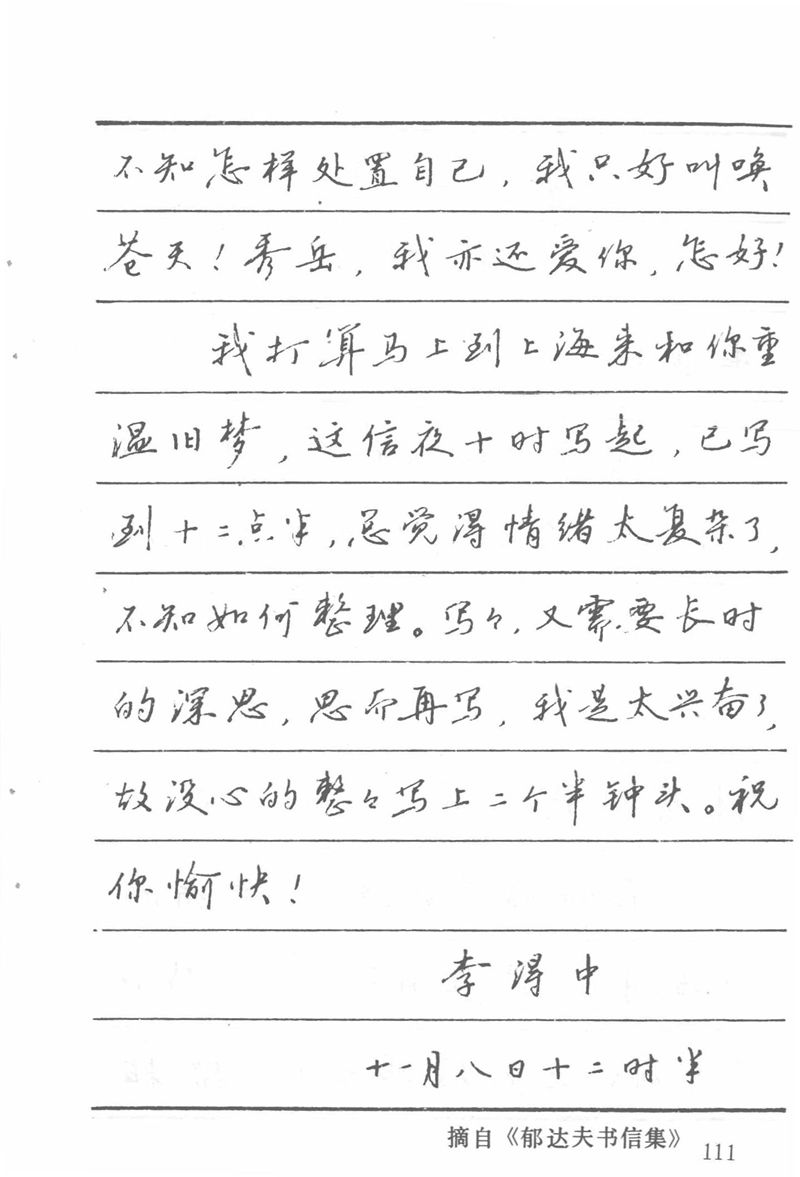 不知怎样处置自己，我只好叫唤
苍天！秀岳，我亦还爱你，怎好！
我打算马上到上海来和你重
温旧梦，这信夜十时写起，已写
到十二点半，总觉得情绪太复杂了，
不知如何整理。写々，又需要长时
的深思，思而再写，我是太兴奋了，
故没心的整々写上二个半钟头。祝
你愉快！
李得中
十一月八日十二时半
摘自《郁达夫书信集》
111